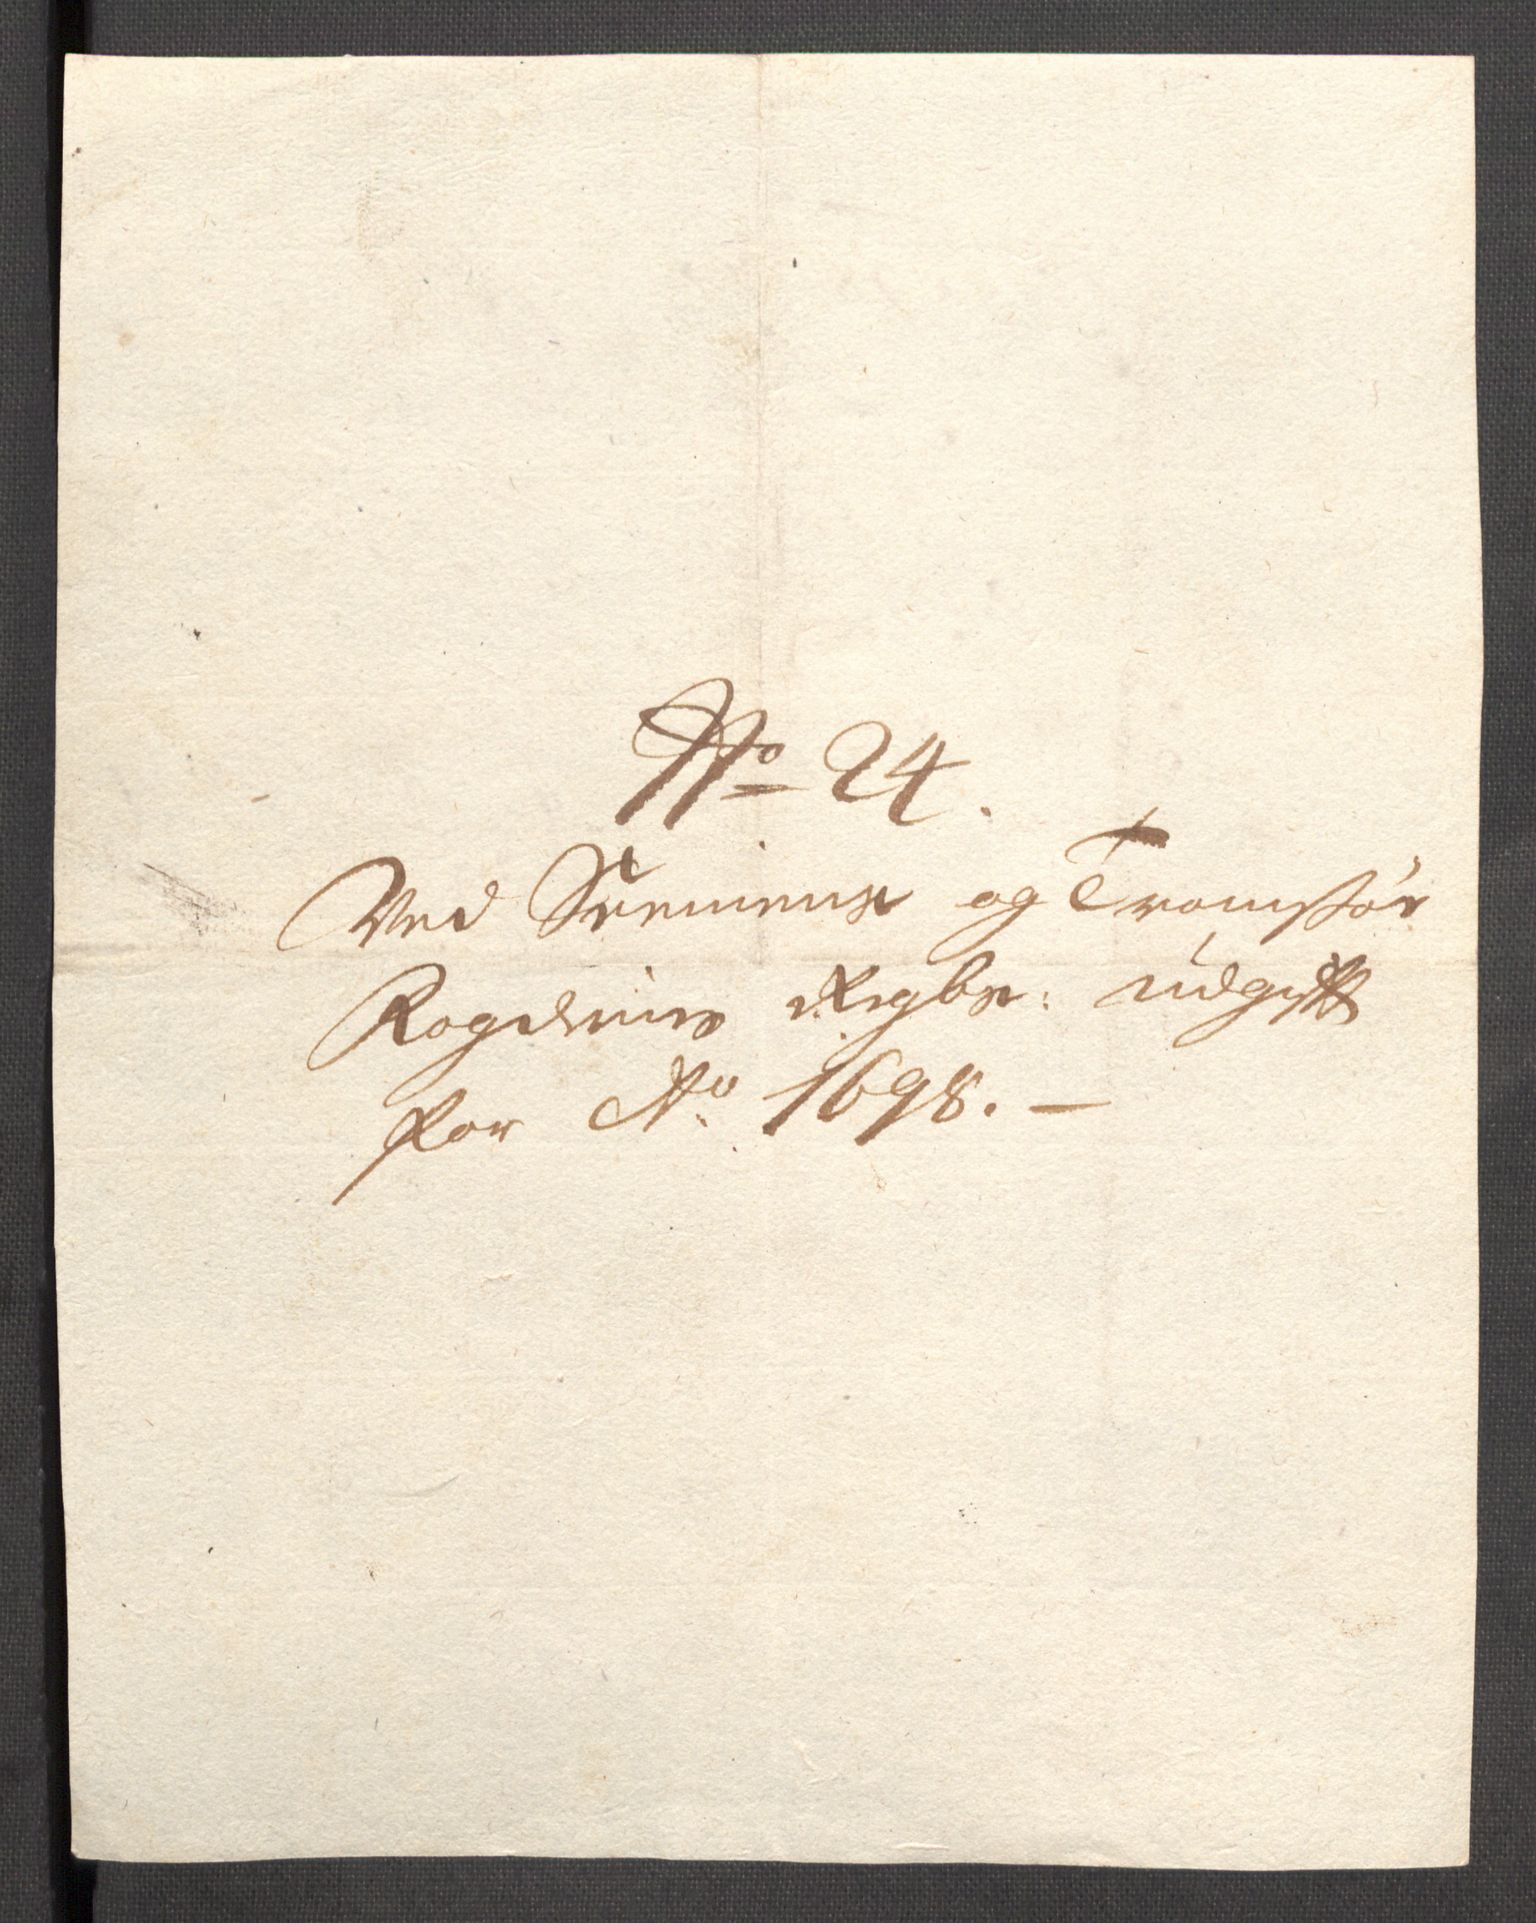 No 24.
Ved Seeniens og Tromsøe
Fogderies Regsk: udgift
for Ao 1698. —